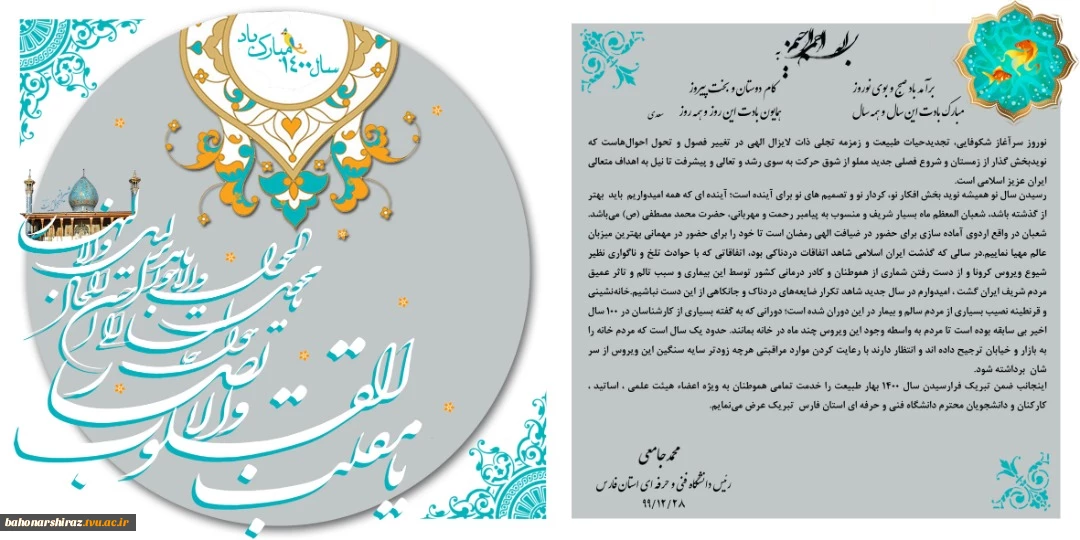 سال ۱۴۰۰ مبارک باد
یا مقلب القلوب
والابصار
یا مدبر اللیل والنهار
یا محول الحول
والاحوال
حول حالنا الی احسن الحال
bahonarshiraz.tvu.ac.ir
بسم الله الرحمن الرحیم
به
برآمد باد صبح و بوی نوروز
به کام دوستان و بخت پیروز
مبارک بادت این سال و همه سال
همایون بادت این روز و همه روز
سعدی
نوروز سرآغاز شکوفایی، تجدیدحیات طبیعت و زمزمه تجلی ذات لایزال الهی در تغییر فصول و تحول احوال‌هاست که
نویدبخش گذار از زمستان و شروع فصلی جدید مملو از شوق حرکت به سوی رشد و تعالی و پیشرفت تا نیل به اهداف متعالی
ایران عزیز اسلامی است.
رسیدن سال نو همیشه نوید بخش افکار نو، کردار نو و تصمیم های نو برای آینده است؛ آینده ای که همه امیدواریم باید بهتر
از گذشته باشد، شعبان المعظم ماه بسیار شریف و منسوب به پیامبر رحمت و مهربانی، حضرت محمد مصطفی (ص) می‌باشد.
شعبان در واقع اردوی آماده سازی برای حضور در ضیافت الهی رمضان است تا خود را برای حضور در مهمانی بهترین میزبان
عالم مهیا نماییم.در سالی که گذشت ایران اسلامی شاهد اتفاقات دردناکی بود، اتفاقاتی که با حوادث تلخ و ناگواری نظیر
شیوع ویروس کرونا و از دست رفتن شماری از هموطنان و کادر درمانی کشور توسط این بیماری و سبب تالم و تاثر عمیق
مردم شریف ایران گشت ، امیدوارم در سال جدید شاهد تکرار ضایعه‌های دردناک و جانکاهی از این دست نباشیم.خانه‌نشینی
و قرنطینه نصیب بسیاری از مردم سالم و بیمار در این دوران شده است؛ دورانی که به گفته بسیاری از کارشناسان در ۱۰۰ سال
اخیر بی سابقه بوده است تا مردم به واسطه وجود این ویروس چند ماه در خانه بمانند. حدود یک سال است که مردم خانه را
به بازار و خیابان ترجیح داده اند و انتظار دارند با رعایت کردن موارد مراقبتی هرچه زودتر سایه سنگین این ویروس از سر
شان برداشته شود.
اینجانب ضمن تبریک فرارسیدن سال ۱۴۰۰ بهار طبیعت را خدمت تمامی هموطنان به ویژه اعضاء هیئت علمی ، اساتید ،
کارکنان و دانشجویان محترم دانشگاه فنی و حرفه ای استان فارس تبریک عرض می‌نمایم.
محمد جامعی
رئیس دانشگاه فنی و حرفه ای استان فارس
۹۹/۱۲/۲۸